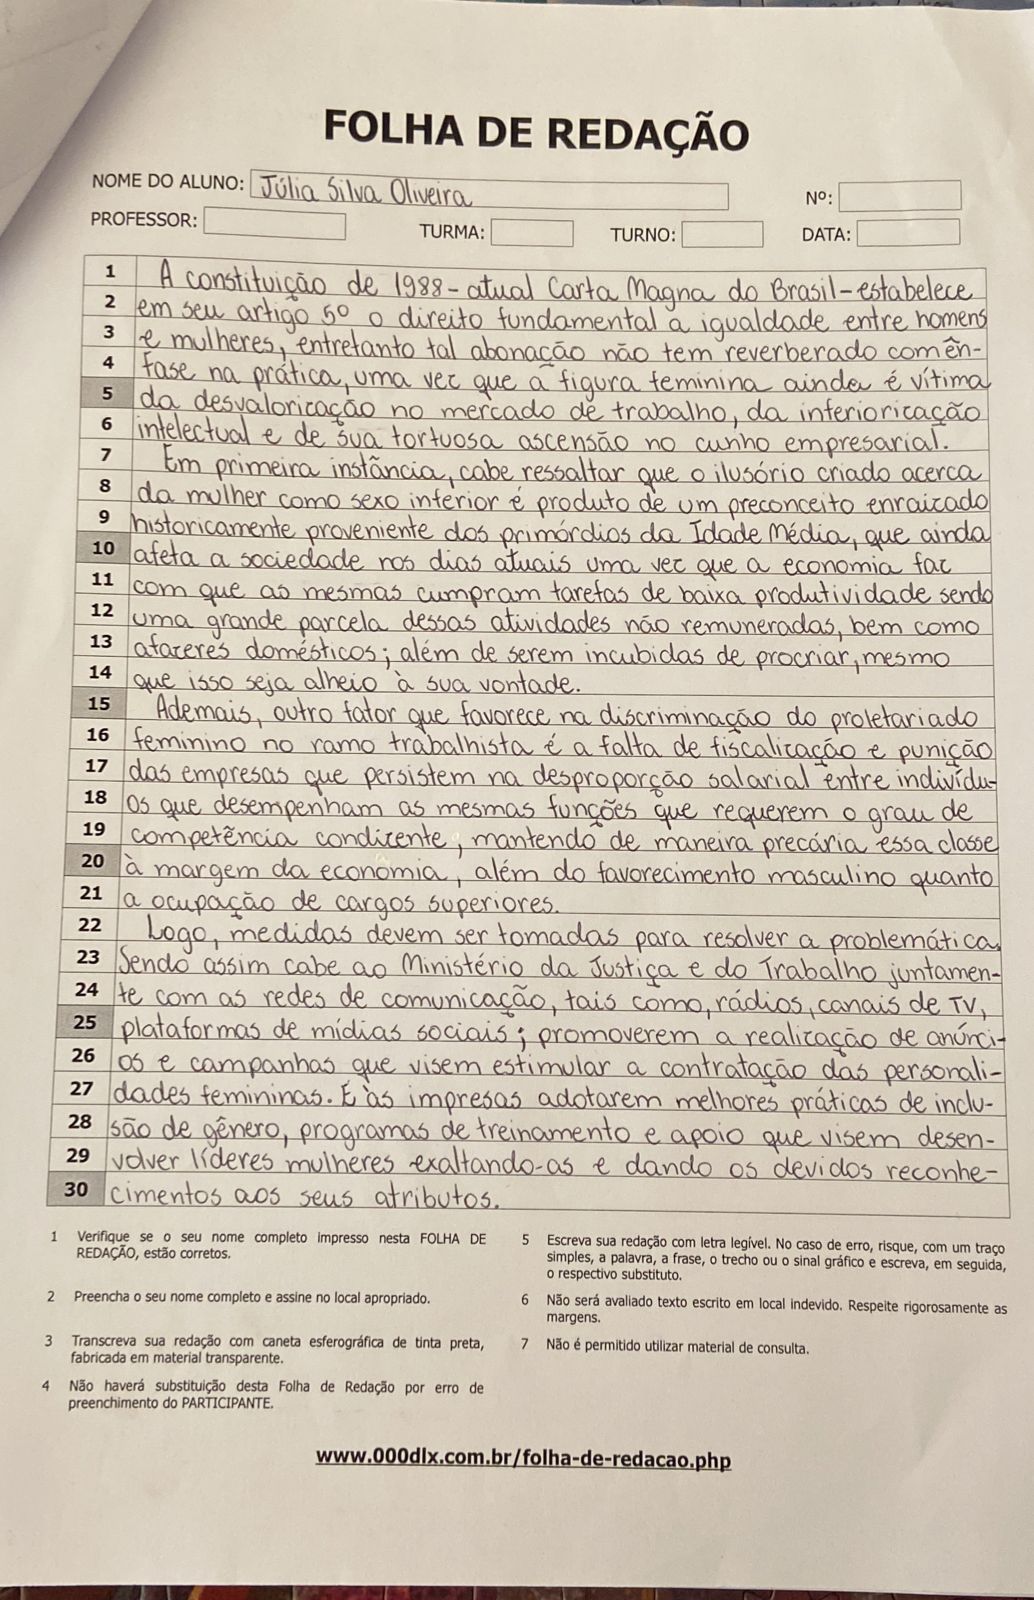 FOLHA DE REDAÇÃO
NOME DO ALUNO: Júlia Silva Oliveira Nº:
PROFESSOR: TURMA: TURNO: DATA:
1 A constituição de 1988 - atual Carta Magna do Brasil - estabelece
2 em seu artigo 5º o direito fundamental a igualdade entre homens
3 e mulheres, entretanto tal abonação não tem reverberado com ên-
4 fase na prática, uma vez que a figura feminina ainda é vítima
5 da desvalorização no mercado de trabalho, da inferiorização
6 intelectual e de sua tortuosa ascensão no cunho empresarial.
7 Em primeira instância, cabe ressaltar que o ilusório criado acerca
8 da mulher como sexo inferior é produto de um preconceito enraizado
9 historicamente proveniente dos primórdios da Idade Média, que ainda
10 afeta a sociedade nos dias atuais uma vez que a economia faz
11 com que as mesmas cumpram tarefas de baixa produtividade sendo
12 uma grande parcela dessas atividades não remuneradas, bem como
13 afazeres domésticos; além de serem incubidas de procriar, mesmo
14 que isso seja alheio à sua vontade.
15 Ademais, outro fator que favorece na discriminação do proletariado
16 feminino no ramo trabalhista é a falta de fiscalização e punição
17 das empresas que persistem na desproporção salarial entre indivídu-
18 os que desempenham as mesmas funções que requerem o grau de
19 competência condizente, mantendo de maneira precária essa classe
20 à margem da economia, além do favorecimento masculino quanto
21 a ocupação de cargos superiores.
22 Logo, medidas devem ser tomadas para resolver a problemática.
23 Sendo assim cabe ao Ministério da Justiça e do Trabalho juntamen-
24 te com as redes de comunicação, tais como, rádios, canais de TV,
25 plataformas de mídias sociais; promoverem a realização de anúnci-
26 os e campanhas que visem estimular a contratação das personali-
27 dades femininas. E às impresas adotarem melhores práticas de inclu-
28 são de gênero, programas de treinamento e apoio que visem desen-
29 volver líderes mulheres exaltando-as e dando os devidos reconhe-
30 cimentos aos seus atributos.
1 Verifique se o seu nome completo impresso nesta FOLHA DE
REDAÇÃO, estão corretos.
2 Preencha o seu nome completo e assine no local apropriado.
3 Transcreva sua redação com caneta esferográfica de tinta preta,
fabricada em material transparente.
4 Não haverá substituição desta Folha de Redação por erro de
preenchimento do PARTICIPANTE.
5 Escreva sua redação com letra legível. No caso de erro, risque, com um traço
simples, a palavra, a frase, o trecho ou o sinal gráfico e escreva, em seguida,
o respectivo substituto.
6 Não será avaliado texto escrito em local indevido. Respeite rigorosamente as
margens.
7 Não é permitido utilizar material de consulta.
www.000dlx.com.br/folha-de-redacao.php